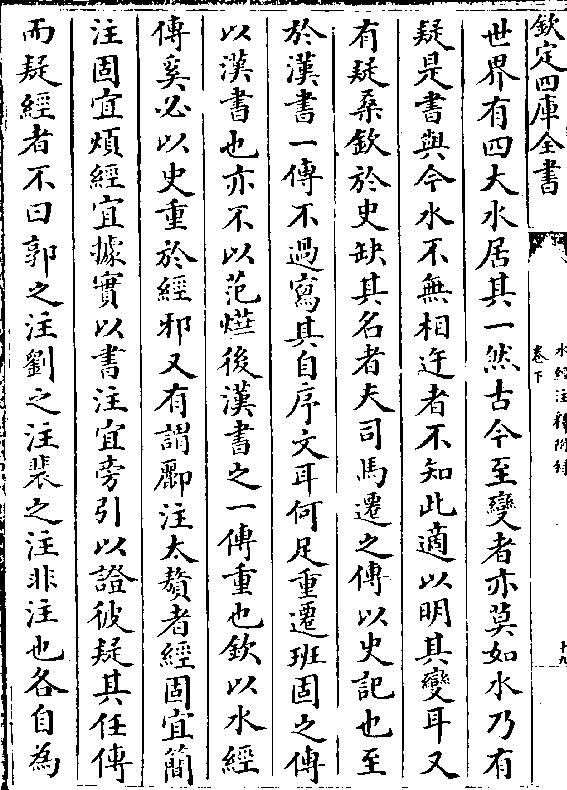 欽定四庫全書
水經注釋附録
卷下
十九
世界有四大水居其一然古今至變者亦莫如水乃有
疑是書與今水不無相迕者不知此適以明其變耳又
有疑桑欽於史缺其名者夫司馬遷之傳以史記也至
於漢書一傳不過寫其自序文耳何足重遷班固之傳
以漢書也亦不以范煜後漢書之一傳重也欽以水經
傳奚必以史重於經邪又有謂酈注太贅者經固宜簡
注固宜煩經宜據實以書注宜旁引以證彼疑其任傳
而疑經者不曰郭之注劉之注裴之注非注也各自為